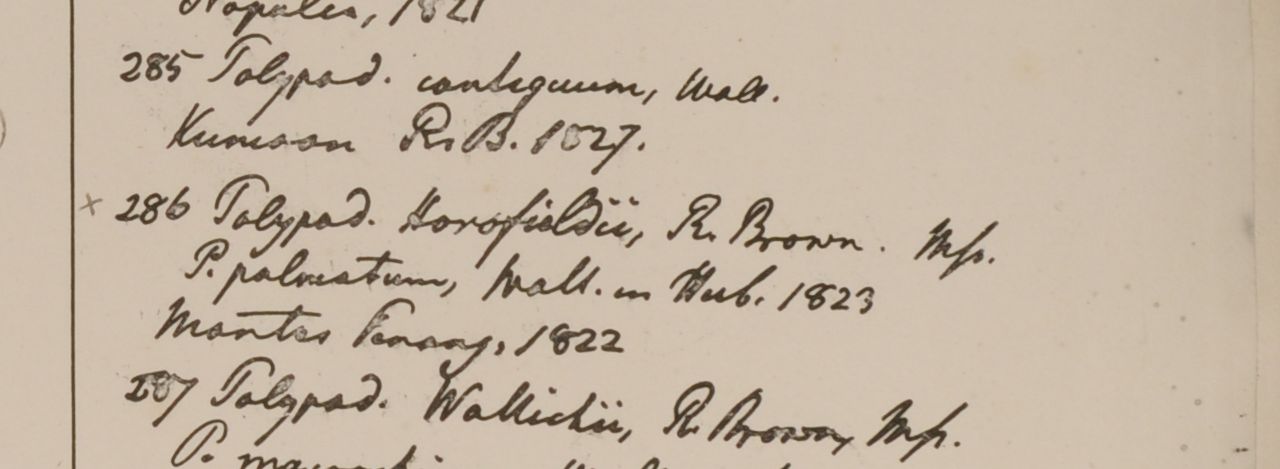 Napalia, 1821
285 Polypod. contiguum, Wall.
Kumaon R. B. 1827.
× 286 Polypod. Horsfieldii, R. Brown. Mss.
P. palmatum, Wall. in Herb. 1823
Montes Penang, 1822
287 Polypod. Wallichii, R. Brown, Mss.
P.